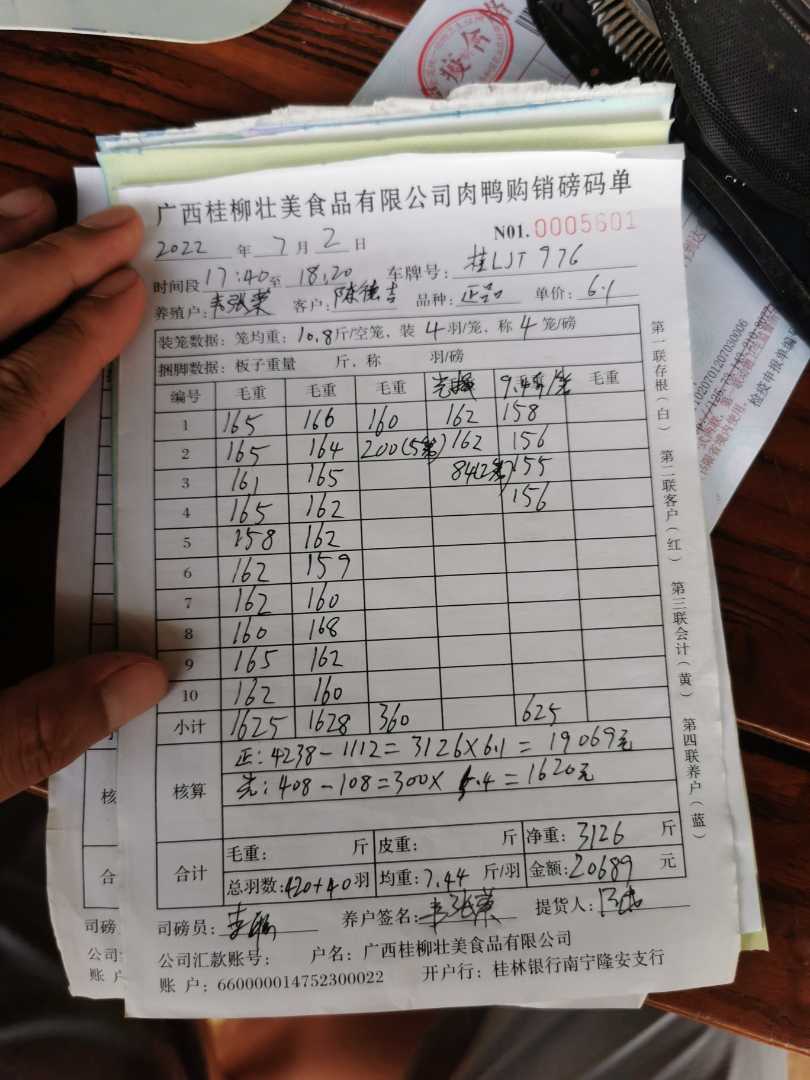 疫合格
广西桂柳壮美食品有限公司肉鸭购销磅码单
2022 年 7 月 2 日 N01. 0005601
时间段 17:40 至 18:20 车牌号: 桂LJT 976
养殖户: 客户: 陈德吉 品种: 正品 单价: 6.1
装笼数据: 笼均重: 10.8 斤/空笼, 装 4 羽/笼, 称 4 笼/磅
捆脚数据: 板子重量 斤, 称 羽/磅
编号 毛重 毛重 毛重 毛重
1 165 166 160 162 158
2 165 164 200(5笼) 162 156
3 161 165 84(2笼) 155
4 165 162 156
5 158 162
6 162 159
7 162 160
8 160 168
9 165 162
10 162 160
小计 1625 1628 360 625
核算 正: 4238-1112=3126×6.1=19069元
壳: 408-108=300× .4=1620元
合计 毛重: 斤 皮重: 斤 净重: 3126 斤
总羽数: 420+40 羽 均重: 7.44 斤/羽 金额: 20689 元
司磅员: 养户签名: 提货人:
公司汇款账号: 户名: 广西桂柳壮美食品有限公司
账 户: 660000014752300022 开户行: 桂林银行南宁隆安支行
第一联存根(白) 第二联客户(红) 第三联会计(黄) 第四联养户(蓝)
检疫申报单编号
核
合
司磅员
公司
账 户